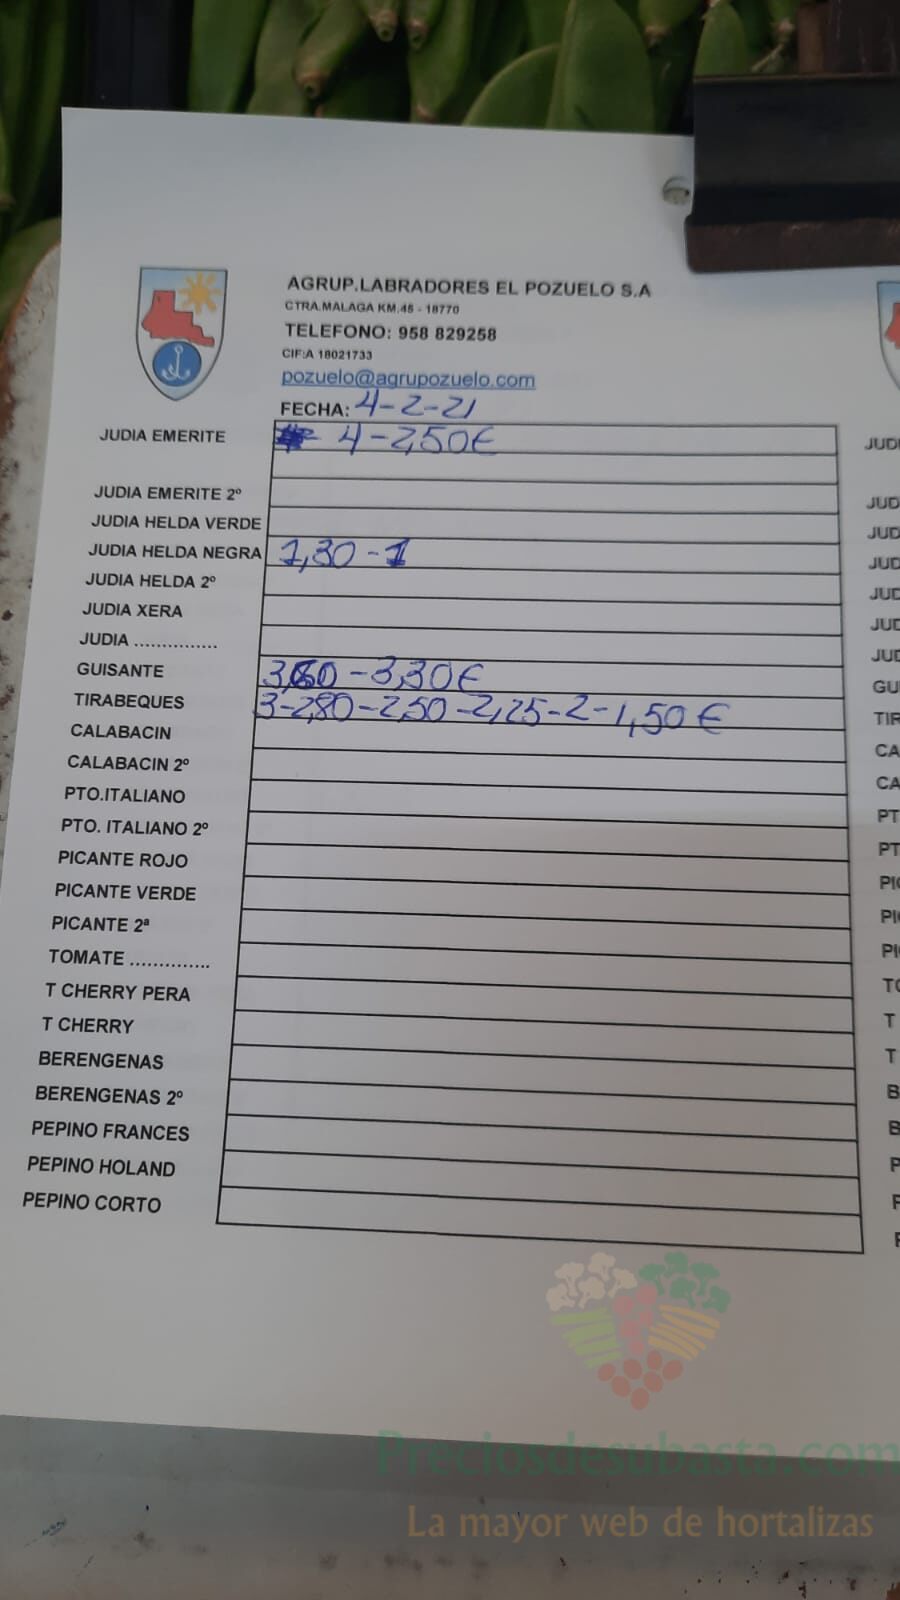 AGRUP.LABRADORES EL POZUELO S.A
CTRA.MALAGA KM.45 - 18770
TELEFONO: 958 829258
CIF:A 18021733
pozuelo@agrupozuelo.com
FECHA: 4-2-21
JUDIA EMERITE 4-2,50€
JUDIA EMERITE 2º
JUDIA HELDA VERDE
JUDIA HELDA NEGRA 1,30-1
JUDIA HELDA 2º
JUDIA XERA
JUDIA ...............
GUISANTE 3,60-3,30€
TIRABEQUES 3-2,80-2,50-2,25-2-1,50€
CALABACIN
CALABACIN 2º
PTO.ITALIANO
PTO. ITALIANO 2º
PICANTE ROJO
PICANTE VERDE
PICANTE 2ª
TOMATE ..............
T CHERRY PERA
T CHERRY
BERENGENAS
BERENGENAS 2º
PEPINO FRANCES
PEPINO HOLAND
PEPINO CORTO
Preciosdesubasta.com
La mayor web de hortalizas